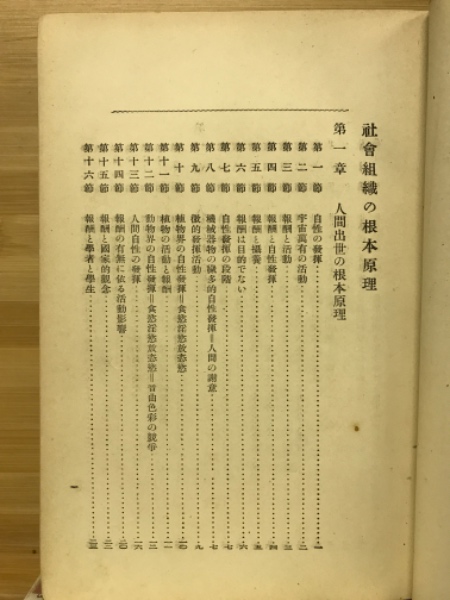 社會組織の根本原理
第一章　人間出世の根本原理
第一節　自性の發揮……一
第二節　宇宙萬有の活動……二
第三節　報酬と活動……三
第四節　報酬と自性發揮……四
第五節　報酬と攝養……五
第六節　報酬は目的でない……六
第七節　自性發揮の段階……七
第八節　機械器物の穢多的自性發揮＝人間の謝意……七
第九節　微的發揮活動……九
第十節　植物界の自性發揮＝食慾淫慾放恣慾……一〇
第十一節　植物の活動と報酬……一一
第十二節　動物界の自性發揮＝食慾淫慾放恣慾＝音曲色彩の競爭……一三
第十三節　人間自性の發揮……一六
第十四節　報酬の有無に依る活動影響……二〇
第十五節　報酬と國家的觀念……
第十六節　報酬と學者と學生……
一